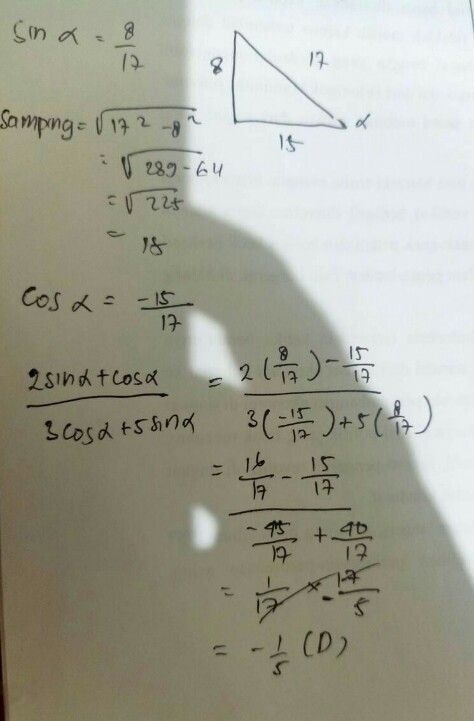 sin α = 8/17
8
17
α
15
samping = √17² - 8²
= √289 - 64
= √225
= 15
cos α = -15/17
2 sin α + cos α / 3 cos α + 5 sin α = 2 (8/17) - 15/17 / 3 (-15/17) + 5 (8/17)
= 16/17 - 15/17 / -45/17 + 40/17
= 1/17 × 17/-5
= -1/5 (D)